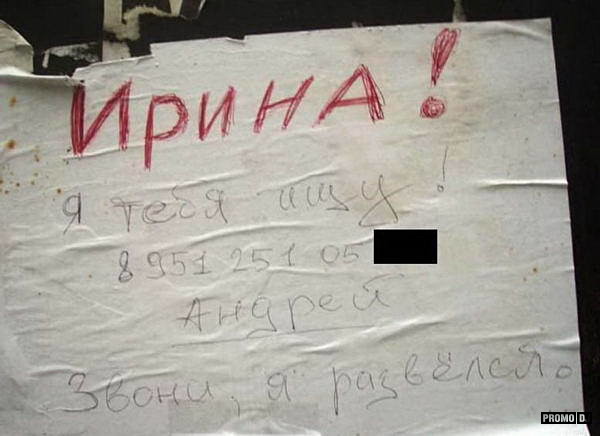 Ирина!
Я тебя ищу!
8 951 251 05
Андрей
Звони, я развёлся.
PROMO DJ